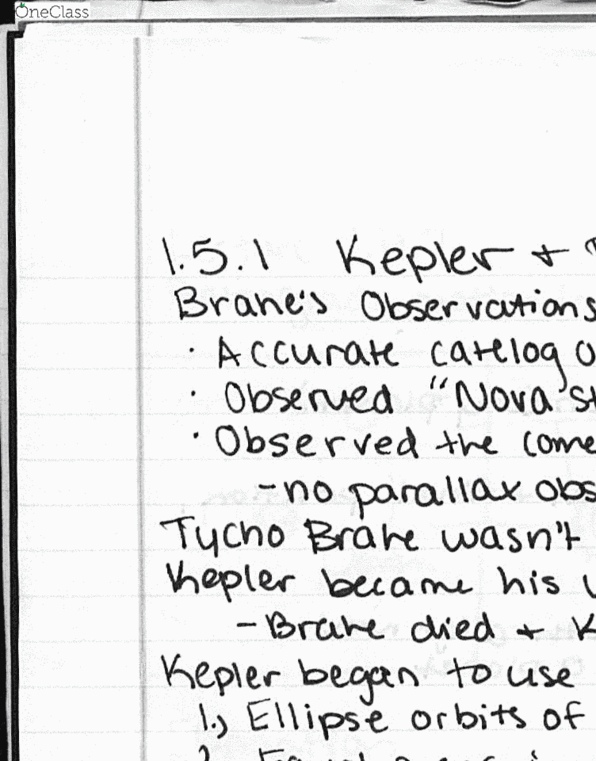 OneClass
1.5.1 Kepler +
Brahe's Observations
· Accurate catelog o
· Observed "Nova st
· Observed the come
- no parallax obs
Tycho Brahe wasn't
Kepler became his
- Brahe died + K
Kepler began to use
1.) Ellipse orbits of
2.